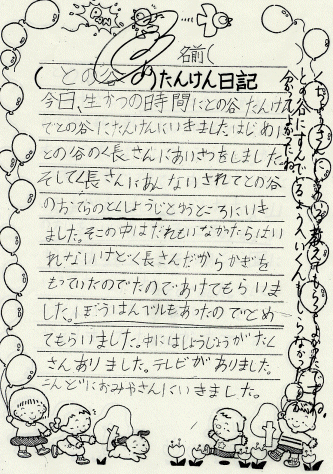 名前(
(との谷のたんけん日記
今日、生かつの時間にとの谷たんけん
でとの谷にたんけんにいきました。はじめに
との谷のく長さんにあいさつをしました。
そしてく長さんにあんないされてとの谷
のおてらのとくしょうじというところにいき
ました。そこの中はだれもいなかったらはい
れないけどく長さんだからかぎを
もっていたのでたのであけてもらいま
した。ぼうはんベルもあったのでとめ
てもらいました。中にはしょうじょうがたく
さんありました。テレビがありました。
こんどにおみやさんにいきました。
との谷にすんでる